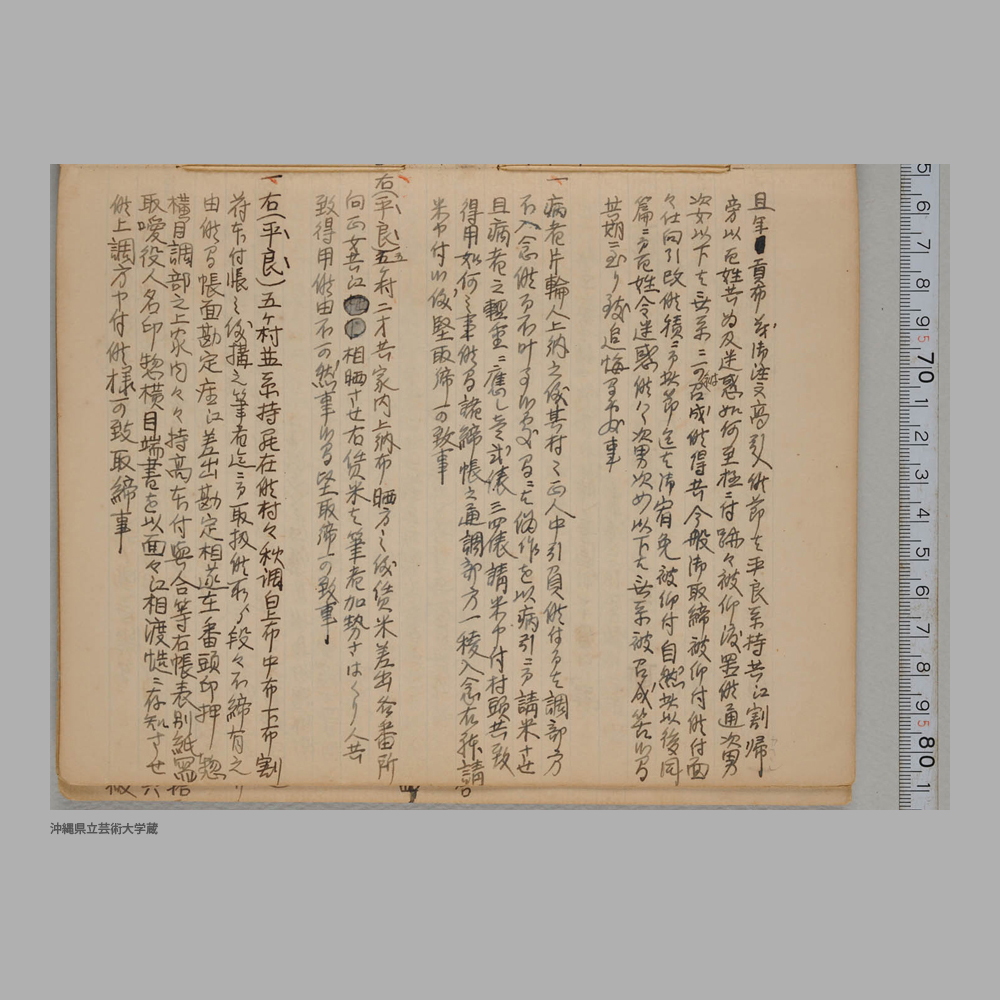 且年貢布並御注文高引入候節も平良系持共江割帰
旁以百姓共為及迷惑如何至極ニ付跡々被仰渡置候通次男
次女以下も無系ニ可被召成候得共今般御取締被仰付候付面
々仕向引改候積ニ而此節迄も御宥免被仰付自然此以後同
篇ニ而百姓令迷惑候ハヽ次男次女以下も無系被召成筈候間
其期ニ至り致追悔間敷事
一 病者片輪人上納之儀其村之正人中引負候付而も調部方
不入念候而不叶事候処間ニも偽作を以病引ニ而請米させ
且病者之軽重ニ應し壱弐俵三四俵請米申付村頭共致
得用如何之事候間詭締帳之通調部方一稜入念右様請
米申付候儀堅取締可致事
一 右(平良)五ヶ村二才共家内上納布晒方之儀賃米差出各番所
向正女共江相晒させ右賃米も筆者加勢さはくり人共
致得用候由不可然事候間堅取締可致事
一 右(平良)五ヶ村並系持居在候村々秋調白上布中布下布割
符未付帳之儀構之筆者迄ニ而取扱候所より段々不締有之
由候間帳面勘定座江差出勘定相遂在番頭印押惣
横目調部之上家内々々持高未付與合等右帳表別紙
取噯役人名印惣横目端書を以面々江相渡慥ニ存知させ
候上調方申付候様可致取締事
5 6 7 8 9 70 1 2 3 4 5 6 7 8 9 80 1
沖縄県立芸術大学蔵